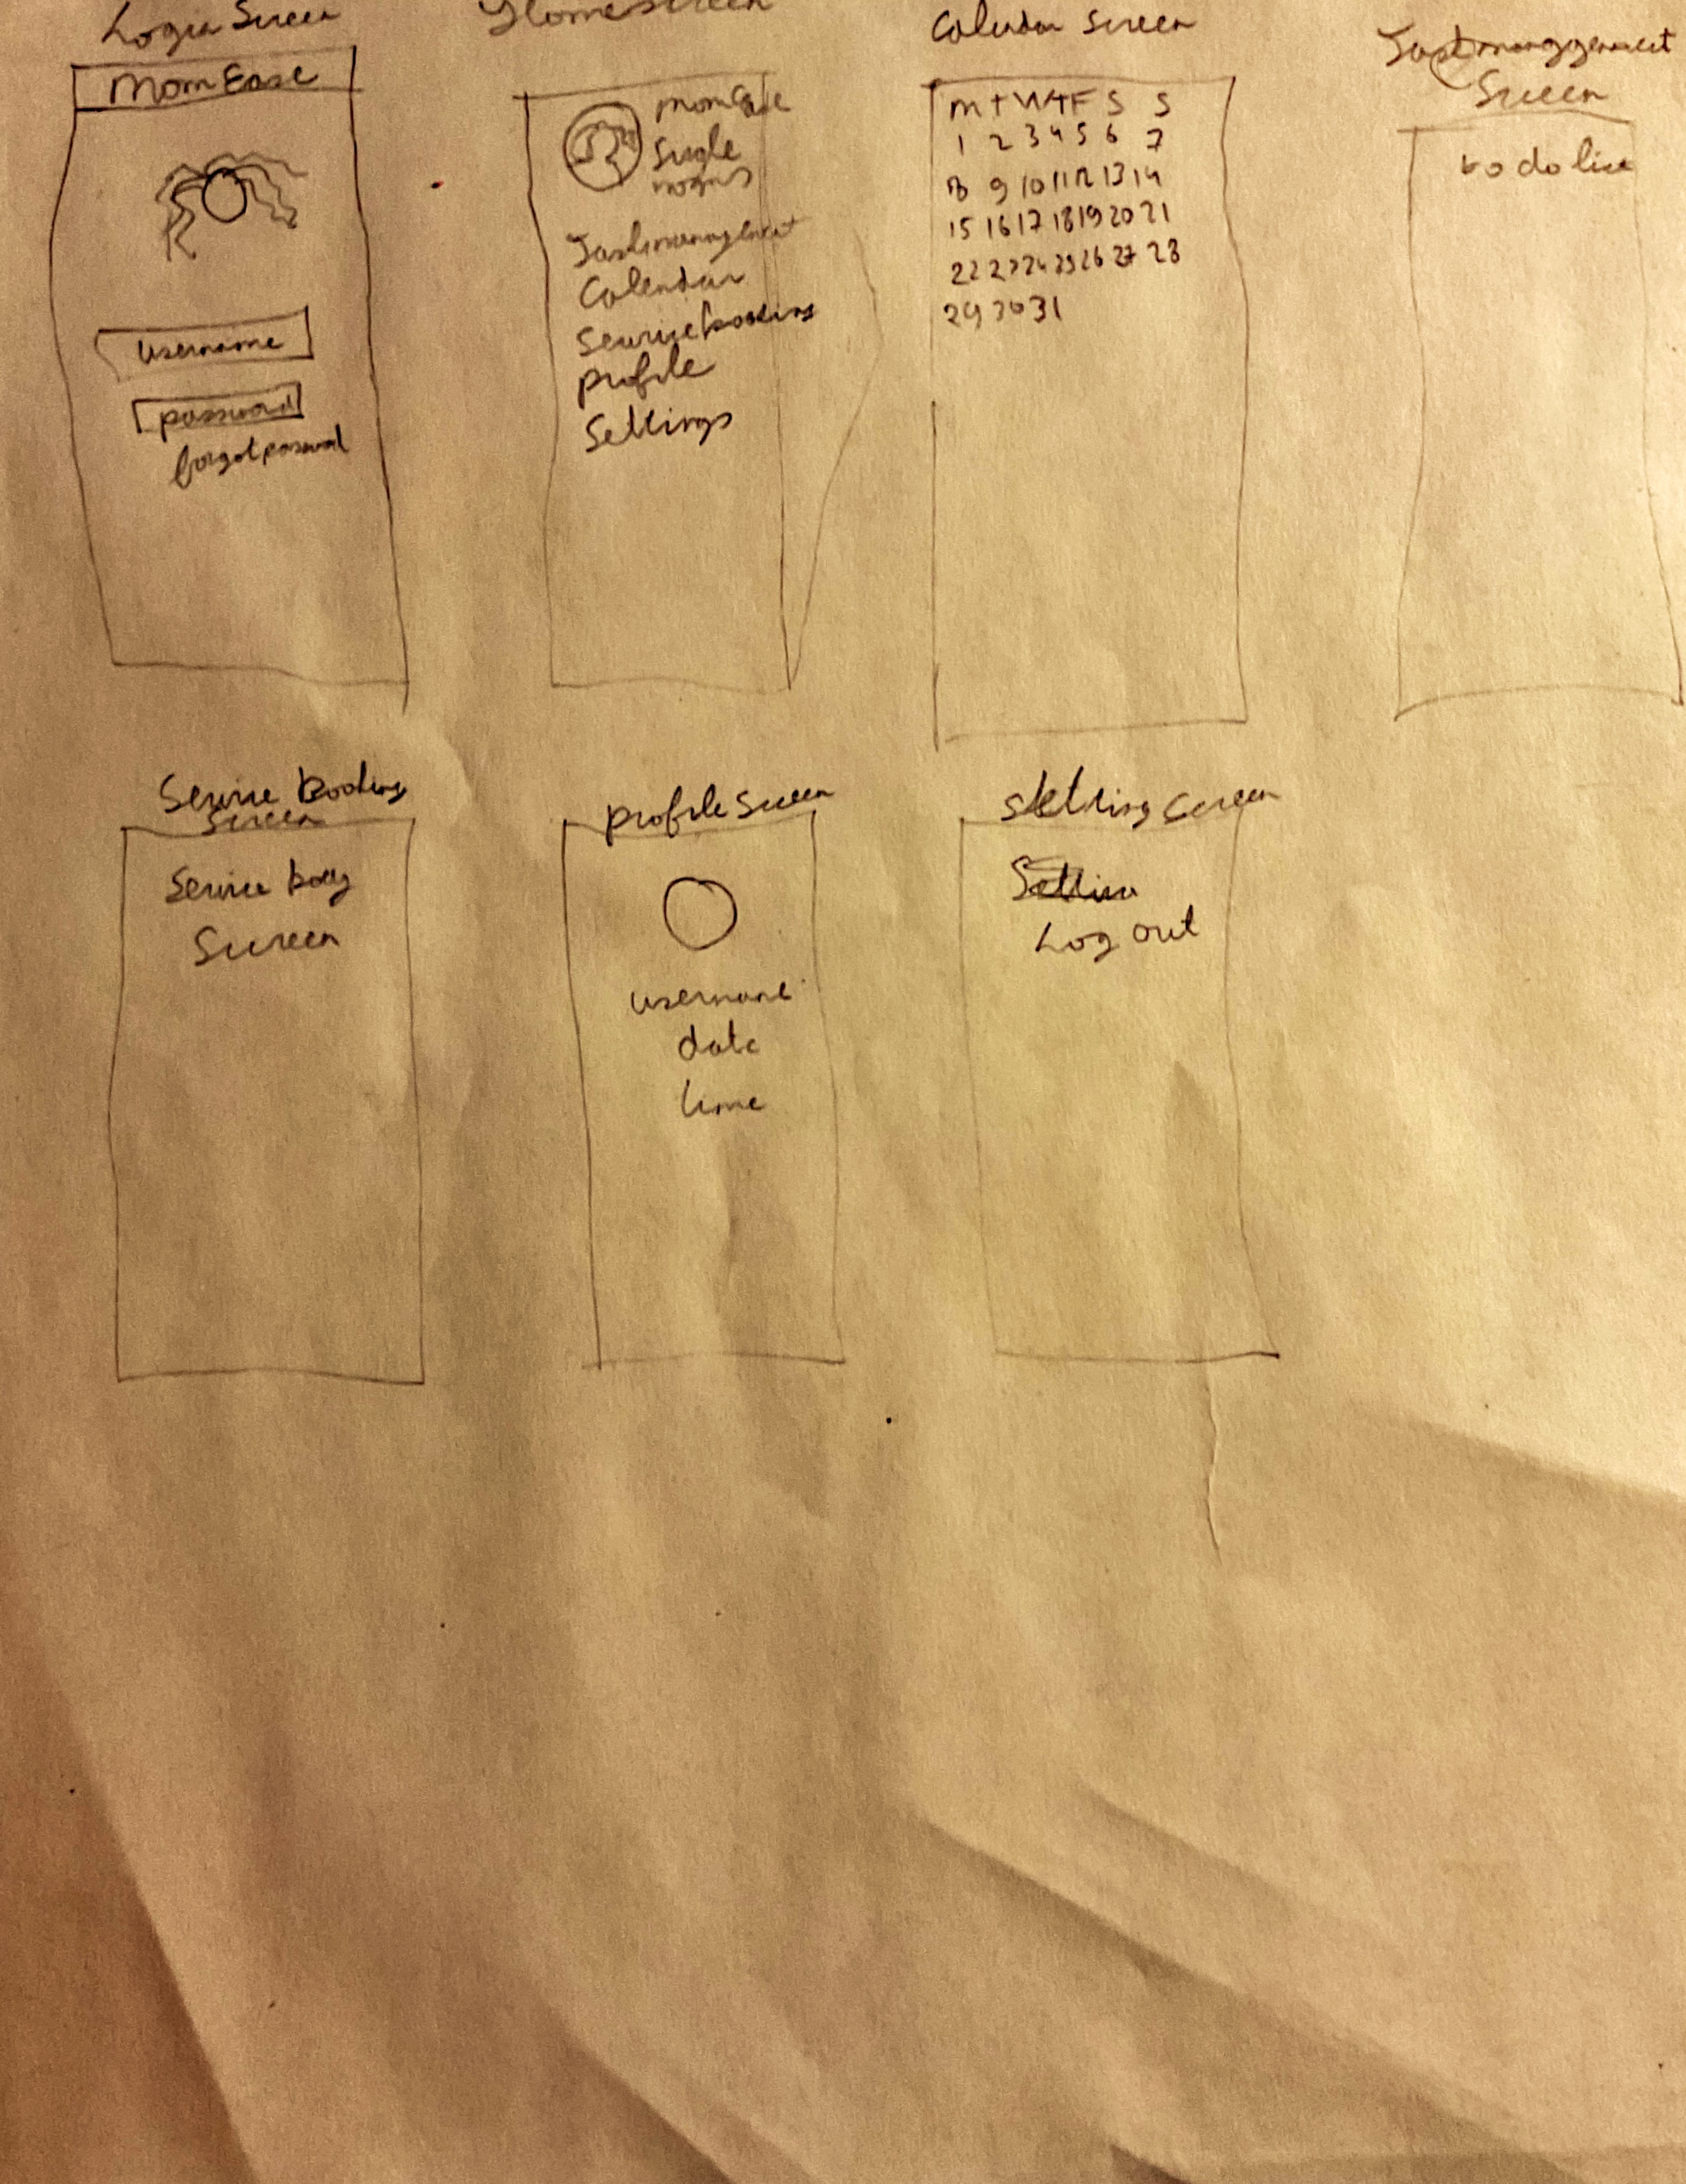 Login Screen
MomEase
username
password
forgot password
Homescreen
MomEase
Single
moms
Taskmanagement
Calendar
Service booking
profile
Settings
Calendar Screen
M T W T F S S
1 2 3 4 5 6 7
8 9 10 11 12 13 14
15 16 17 18 19 20 21
22 23 24 25 26 27 28
29 30 31
Taskmanagement
Screen
to do list
Service Booking
Screen
Service
Screen
profile Screen
username
date
time
Setting Screen
Log out